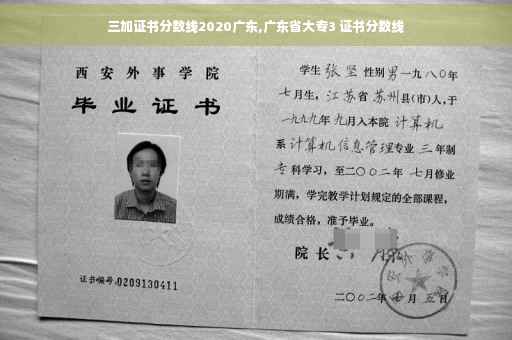 三加证书分数线2020广东,广东省大专3 证书分数线
西安外事学院
毕业证书
证书编号:0209130411
学生 张坚 性别 男 一九八〇年
七月生，江苏省 苏州县(市)人，于
一九九九年 九月入本院 计算机
系 计算机信息管理专业 三 年制
专科学习，至二〇〇二年 七月修业
期满，学完教学计划规定的全部课程，
成绩合格，准予毕业。
院长
二〇〇二年 七 月 五 日